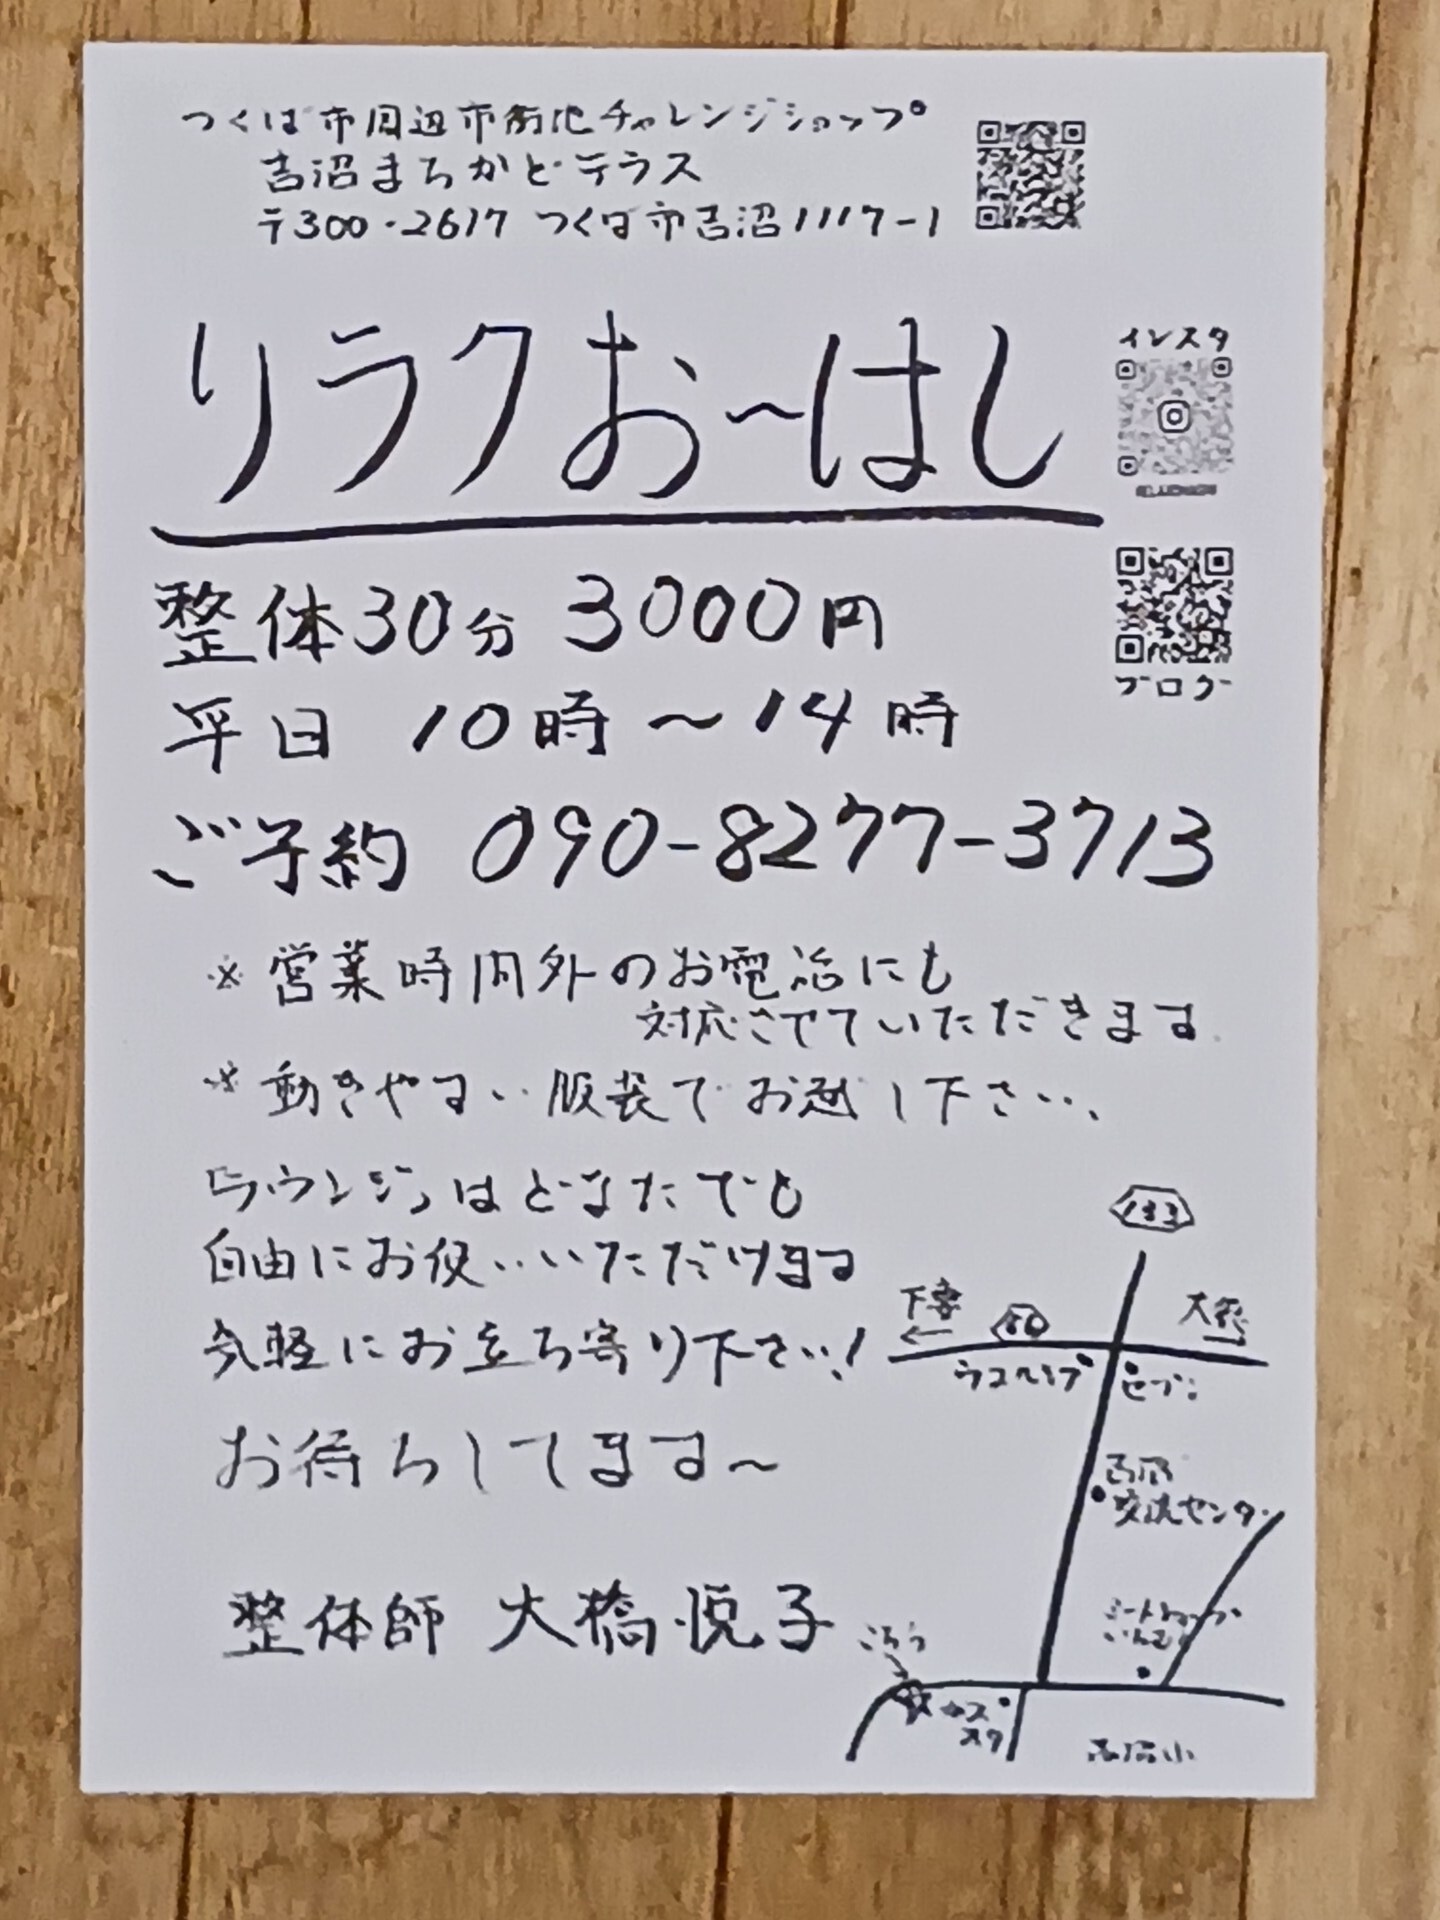 つくば市周辺市街地チャレンジショップ
吉沼まちかどテラス
〒300-2617 つくば市吉沼1117-1
リラクお～はし
インスタ
整体30分 3000円
ブログ
平日 10時～14時
ご予約 090-8277-3713
※営業時間外のお電話にも
対応させていただきます
※動きやすい服装でお越し下さい、
ラウンジはどなたでも
自由にお使いいただけます
気軽にお立ち寄り下さい!
お待ちしてます～
整体師 大橋悦子
133
下妻
56
大穂
ウエルシア
セブン
吉沼
交流センター
ミートショップ
ここ
ガス
スタ
吉沼小